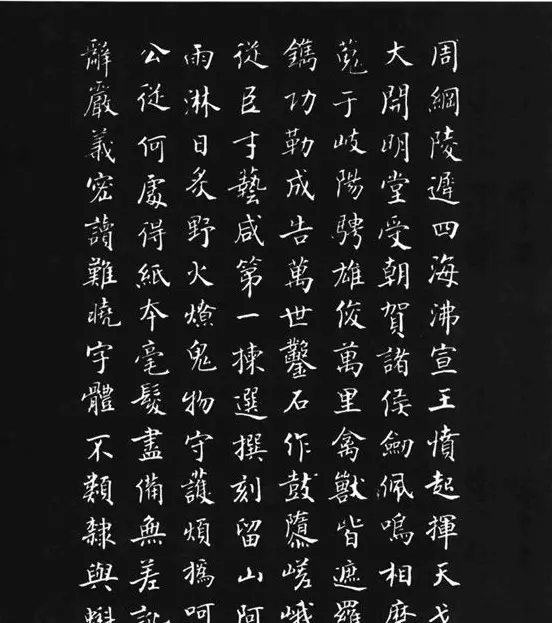 周綱陵遲四海沸宣王憤起揮天戈
大開明堂受朝賀諸侯劒佩鳴相磨
蒐于岐陽騁雄俊萬里禽獸皆遮羅
鐫功勒成告萬世鑿石作鼓隳嵯峨
從臣才藝咸第一揀選撰刻留山阿
雨淋日炙野火燎鬼物守護煩撝呵
公從何處得紙本毫髮盡備無差訛
辭嚴義密讀難曉字體不類隸與蝌